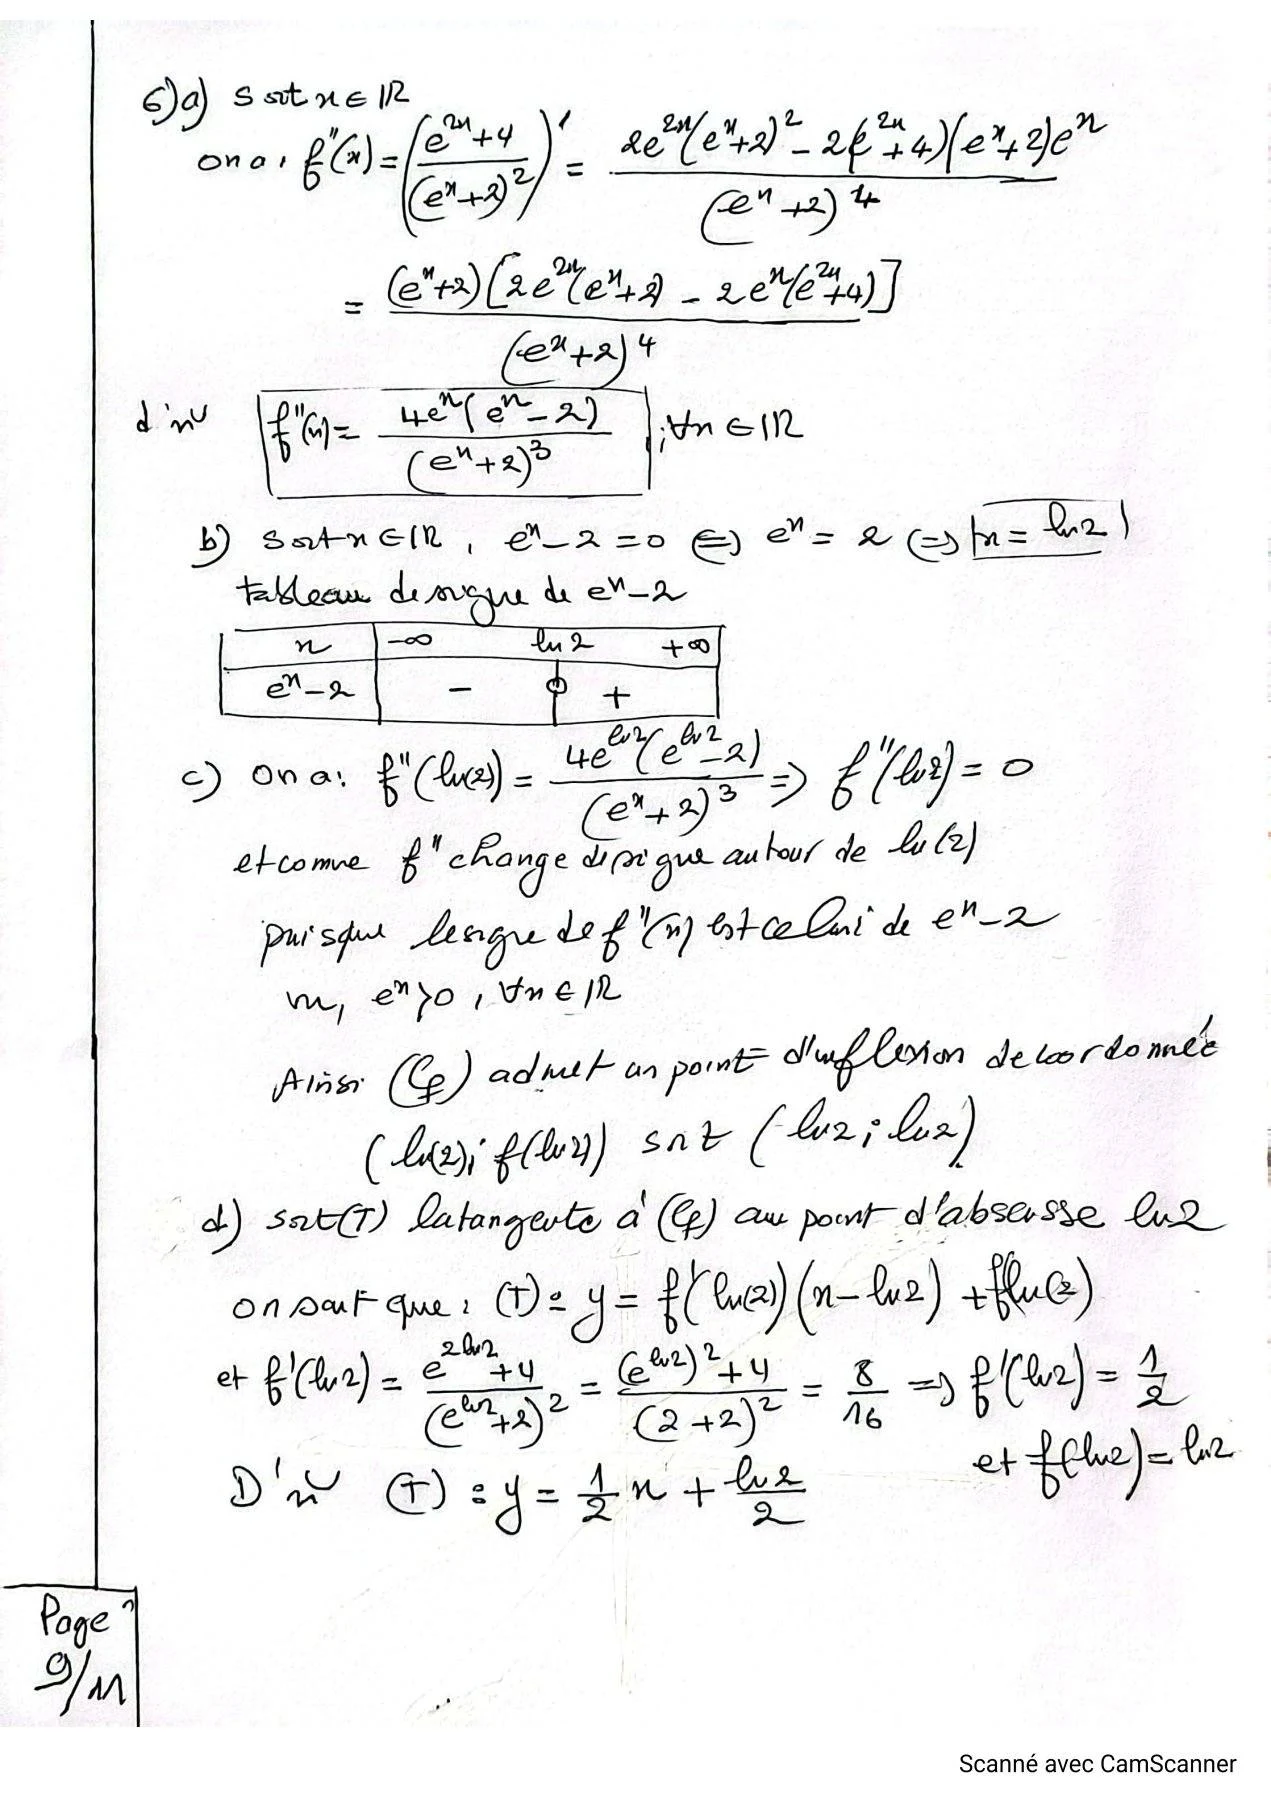 6)a) Soit x ∈ IR
on a: f''(x) = ((e^{2x}+4)/(e^x+2)^2)' = (2e^{2x}(e^x+2)^2 - 2(e^{2x}+4)(e^x+2)e^x)/(e^x+2)^4
= ((e^x+2)[2e^{2x}(e^x+2) - 2e^x(e^{2x}+4)])/(e^x+2)^4
d'où f''(x) = (4e^x(e^x-2))/(e^x+2)^3 ; ∀x ∈ IR
b) Soit x ∈ IR, e^x - 2 = 0 ⟺ e^x = 2 ⟺ x = ln2
tableau de signe de e^x-2
x -∞ ln 2 +∞
e^x-2 - 0 +
c) on a: f''(ln(2)) = (4e^{ln2}(e^{ln2}-2))/(e^x+2)^3 ⟹ f''(ln2) = 0
et comme f'' change de signe autour de ln(2)
puisque le signe de f''(x) est celui de e^x-2
car, e^x>0, ∀x ∈ IR
Ainsi (Cf) admet un point d'inflexion de coordonnée
(ln(2); f(ln2)) soit (ln2; ln2)
d) soit (T) la tangente à (Cf) au point d'abscisse ln2
on sait que: (T): y = f'(ln(2))(x-ln2) + f(ln(2)
et f'(ln2) = (e^{2ln2}+4)/(e^{ln2}+2)^2 = ((e^{ln2})^2+4)/(2+2)^2 = 8/16 ⟹ f'(ln2) = 1/2
et f(ln2) = ln2
D'où (T): y = 1/2 x + ln2/2
Page
9/11
Scanné avec CamScanner